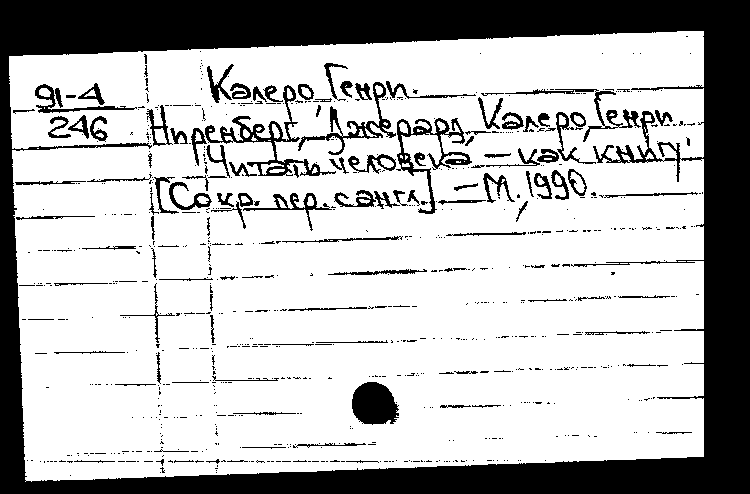 91-4
246
Калеро Генри.
Ниренберг, Джерард, Калеро, Генри.
Читать человека - как книгу
[Сокр. пер. с англ.]. - М., 1990.